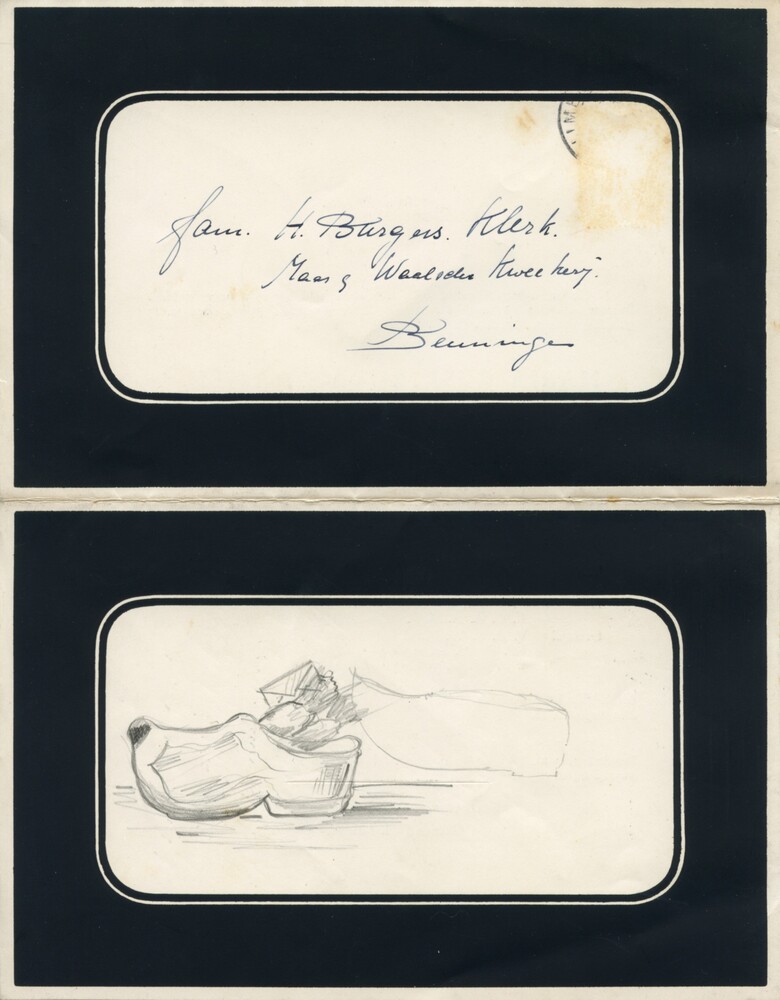 Fam. H. Burgers. Klerk.
Maas & Waalsche Kweekerij.
Beuningen